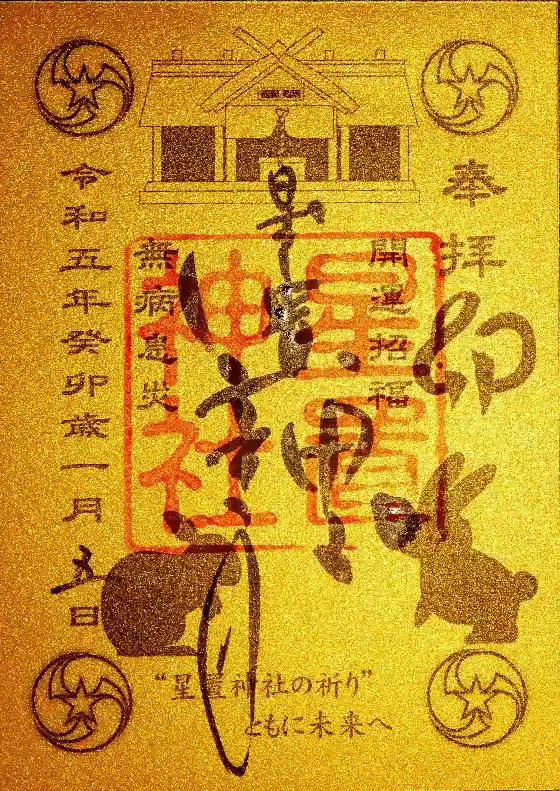 奉拝
卯
開運招福
星置神社
星置神社
無病息災
令和五年癸卯歳一月
五日
“星置神社の祈り”
ともに未来へ